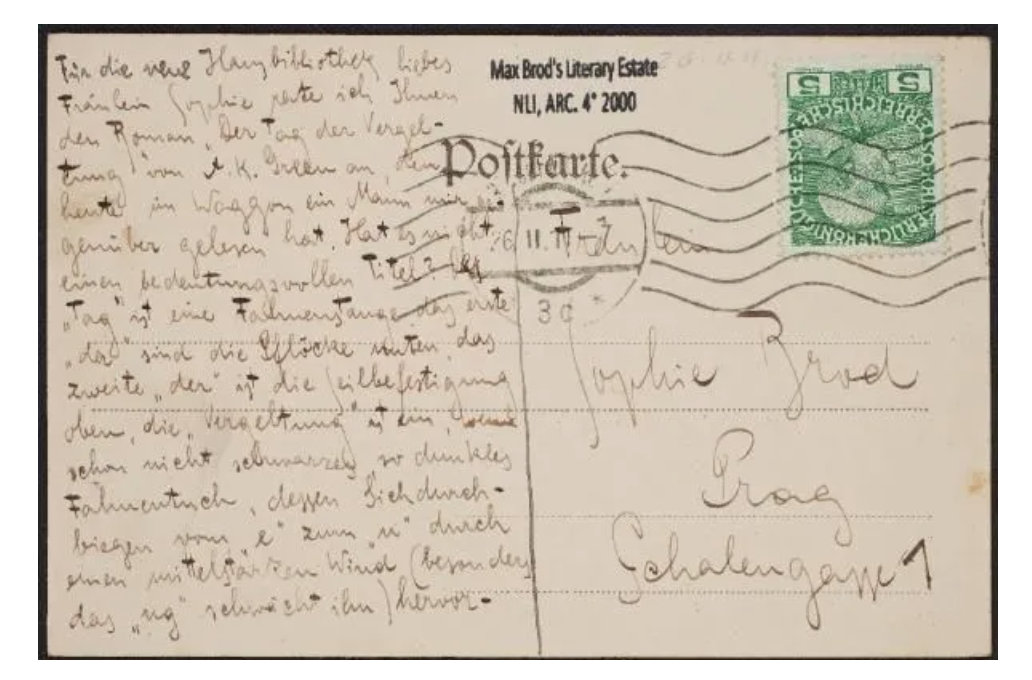 Für die neue Hausbibliothek liebes
Fräulein Sophie rate ich Ihnen
den Roman „Der Tag der Vergel-
tung" von A. K. Green an, den
heute im Waggon ein Mann mir ge-
genüber gelesen hat. Hat es nicht
einen bedeutungsvollen Titel? Der
„Tag" ist eine Fahnenstange, das erste
„der" sind die Pflöcke unten, das
zweite „der" ist die Seilbefestigung
oben, die „Vergeltung" ist ein, wenn
schon nicht schwarzes, so dunkles
Fahnentuch, dessen Sichdurch-
biegen vom „e" zum „u" durch
einen mittelstarken Wind (besonders
das „ng" schwächt ihn) hervor-
Max Brod's Literary Estate
NLI, ARC. 4° 2000
Postkarte.
5 5
II. 11
3d *
Fräulein
Sophie Brod
Prag
Schalengasse 1